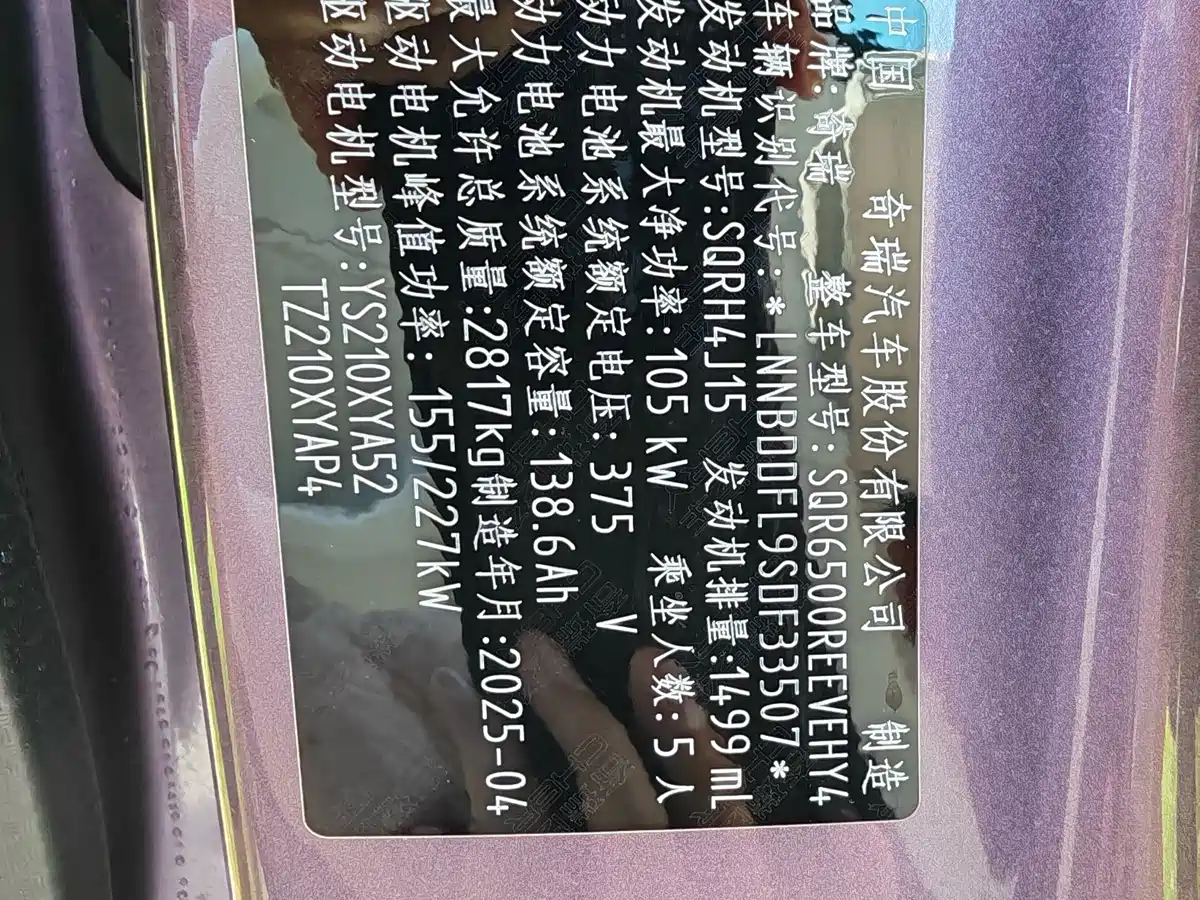 中国 奇瑞汽车股份有限公司 制造
品牌:奇瑞 整车型号:SQR6500REEVEHY4
车辆识别代号:*LNNBDDFL9SDF33507*
发动机型号:SQRH4J15 发动机排量:1499mL
发动机最大净功率:105kW 乘坐人数:5人
动力电池系统额定电压:375 V
动力电池系统额定容量:138.6Ah
最大允许总质量:2817kg制造年月:2025-04
驱动电机峰值功率:155/227kW
驱动电机型号:YS210XYA52
TZ210XYAP4